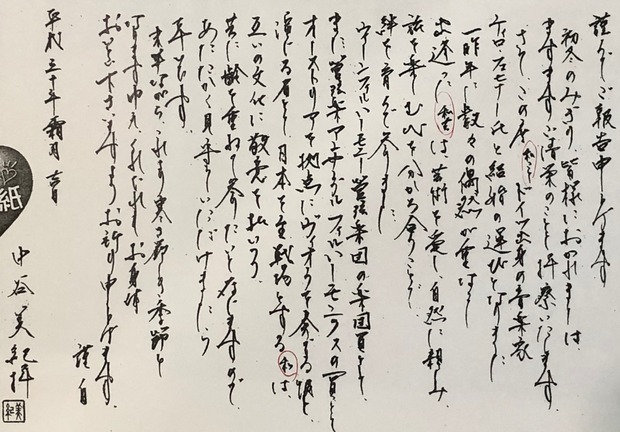 謹んでご報告申し上げます
初冬のみぎり、皆様におかれましては、
ますますご清栄のことと拝察いたします。
さて、この度私こと、ドイツ出身の音楽家
ティロ・フェヒナー氏と結婚の運びとなりました。
一昨年に数々の偶然が重なり
出逢った私たちは、芸術を愛し、自然に親しみ
旅を楽しむ心を分かち合うことで
絆を育んで参りました。
ウィーンフィルハーモニー管弦楽団の楽団員として
また管弦楽アンサンブルフィルハーモニクスの一員として
オーストリアを拠点にヴィオラを奏でる彼と
演じる者として日本を主戦場とする私は、
互いの文化に敬意を払いつつ
共に齢を重ねて参りたいと存じますので
あたたかく見守っていただけましたら
幸いです。
末筆ながら、これより寒さ厳しき季節と
なりますゆえ、くれぐれもお身体
おいとい下さいますようお祈り申し上げます。
謹白
平成三十年霜月吉日
中谷美紀拝
美紀
紙